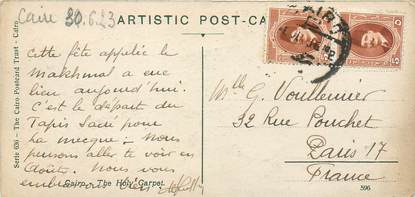 Caire 30.6.23
ARTISTIC POST-CA
Serie 630 - The Cairo Postcard Trust - Cairo
Cette fête appelée le
makhmal a eu
lieu aujourd'hui.
C'est le départ du
Tapis Sacré pour
La mecque. Nous
pensons aller te voir en
Août. Nous vous
embrassons bien.
Cairo - The Holy Carpet.
Mlle G. Voullemier
32 Rue Pouchet
Paris 17
France
596